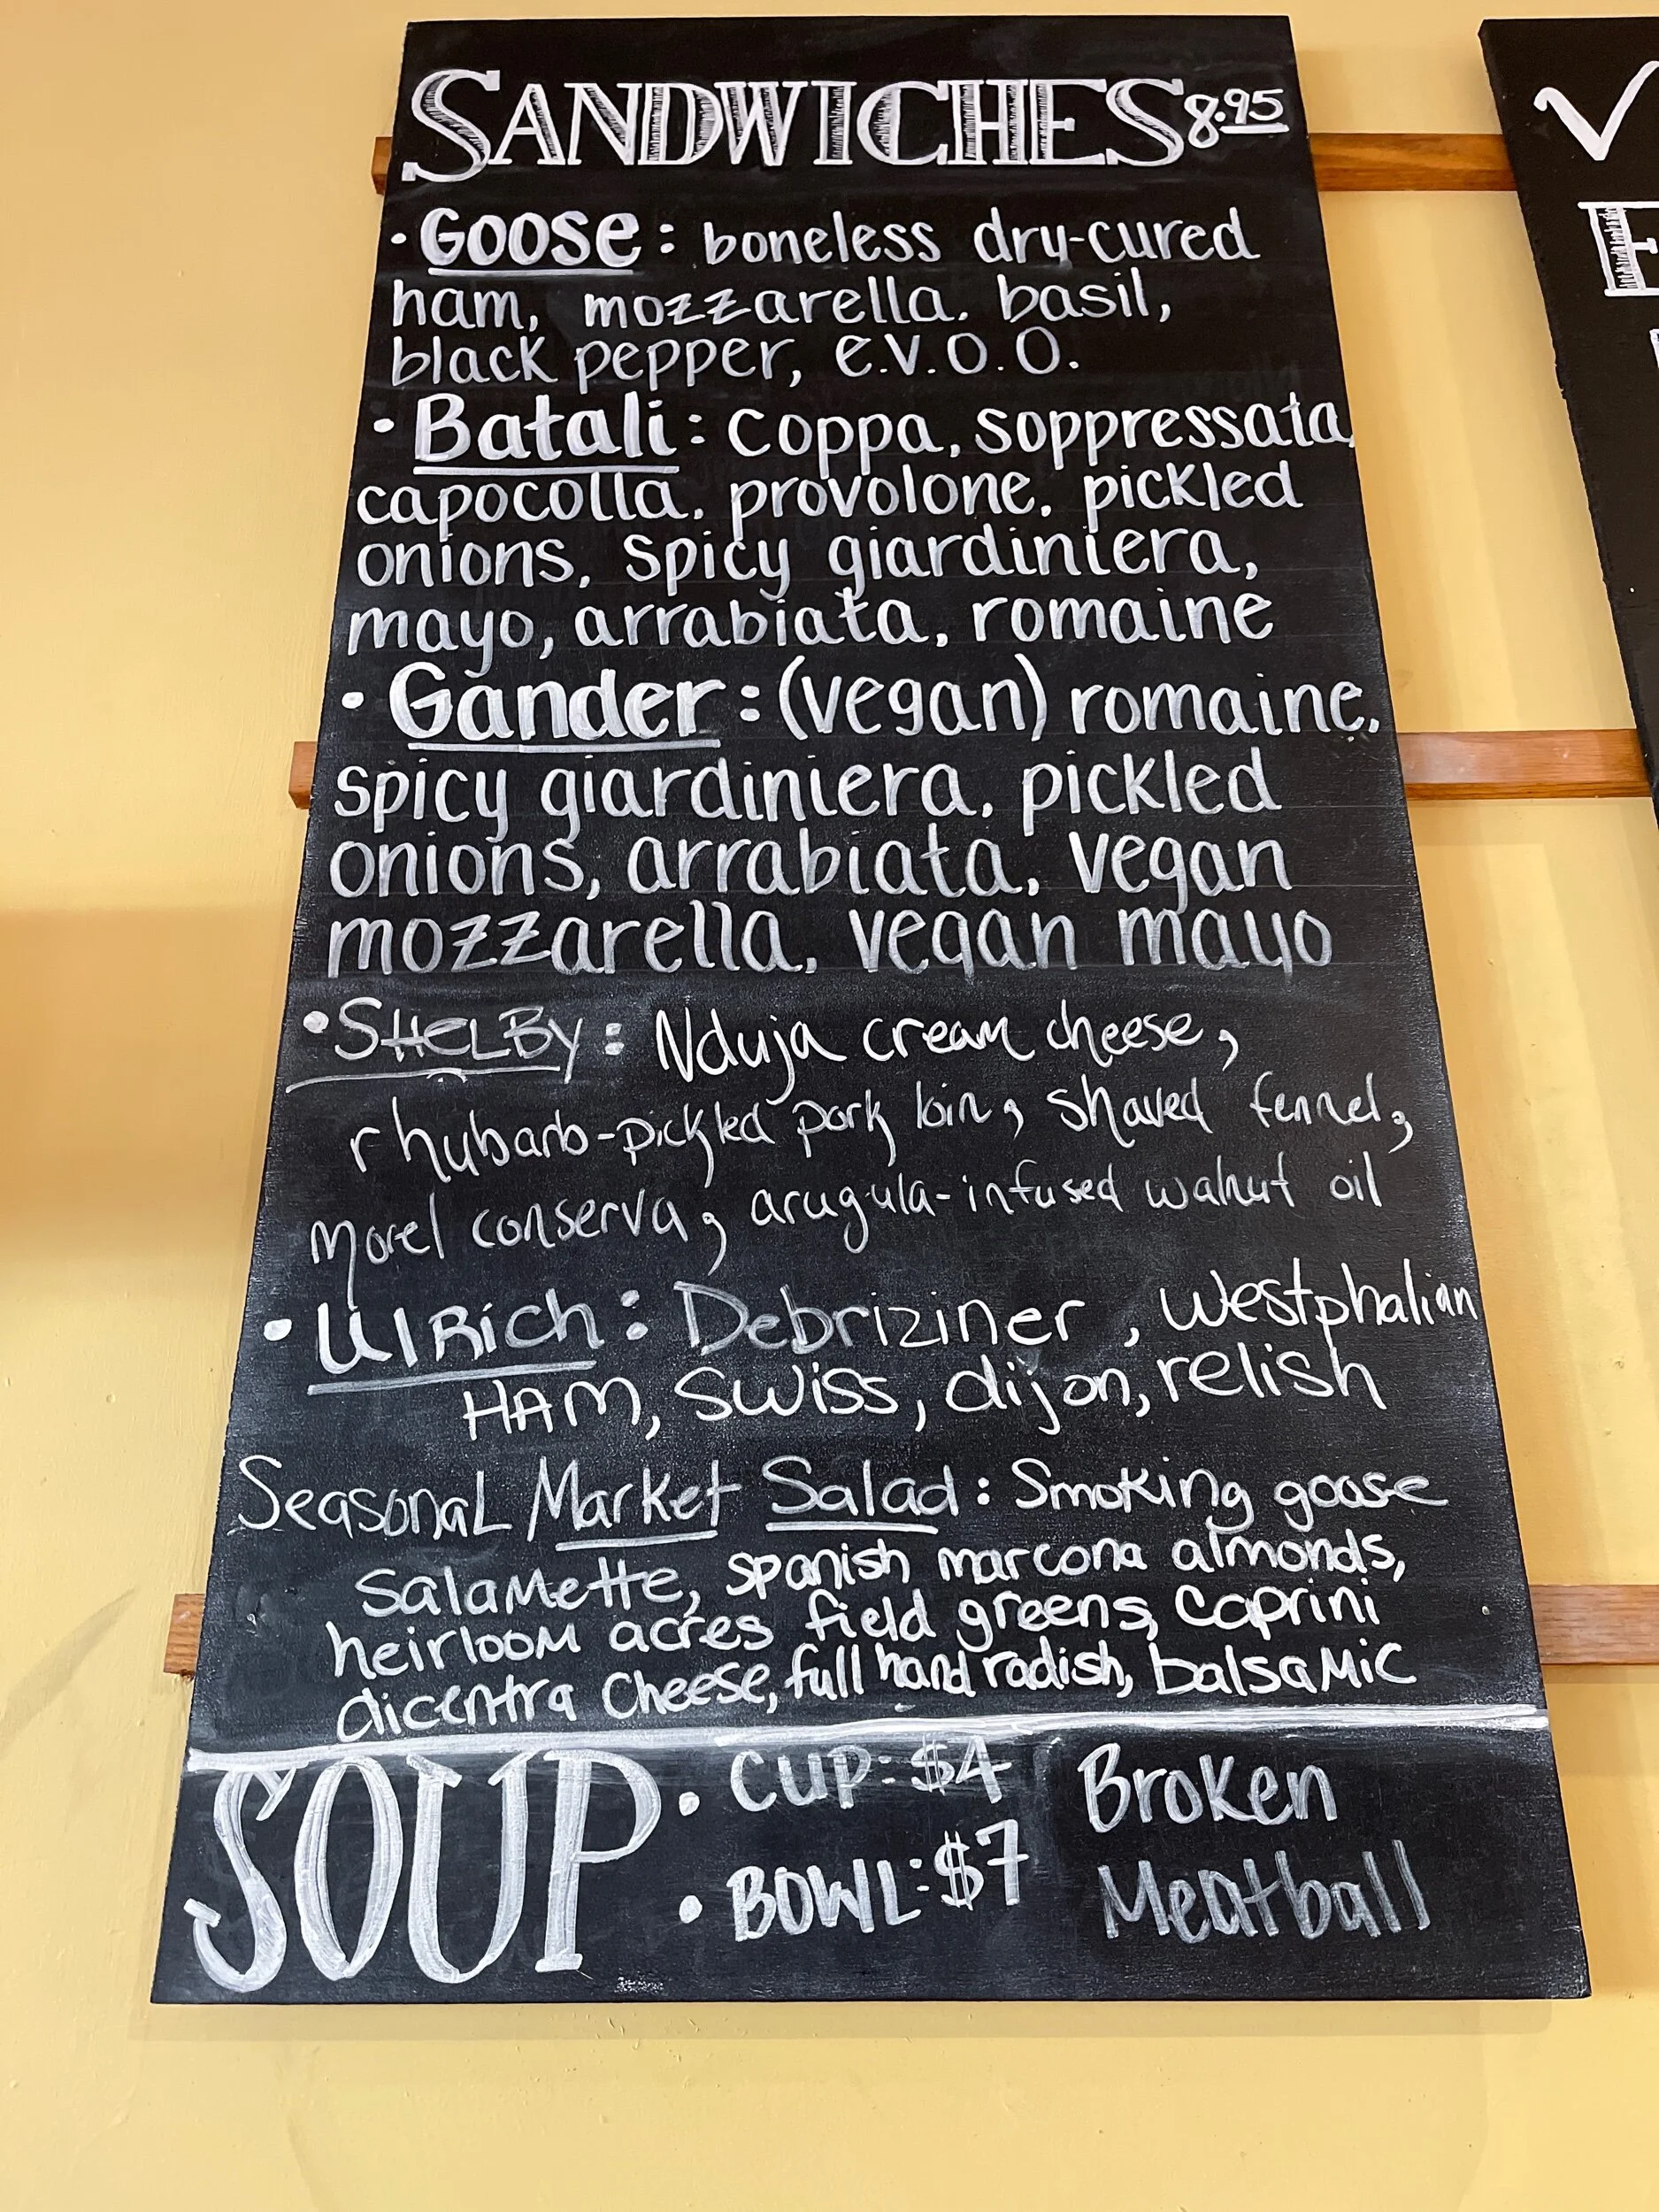 SANDWICHES 8.95
• Goose: boneless dry-cured
ham, mozzarella. basil,
black pepper, e.v.o.o.
• Batali: coppa, soppressata,
capocolla, provolone, pickled
onions, spicy giardiniera,
mayo, arrabiata, romaine
• Gander: (vegan) romaine,
spicy giardiniera, pickled
onions, arrabiata, vegan
mozzarella, vegan mayo
• SHELBy: Nduja cream cheese,
rhubarb-pickled pork loin, shaved fennel,
morel conserva, arugula-infused walnut oil
• UlRich: Debriziner, Westphalian
HAM, Swiss, dijon, relish
Seasonal Market Salad: Smoking goose
Salamette, spanish marcona almonds,
heirloom acres field greens, Caprini
dicentra Cheese, full hand radish, balsamic
SOUP • CUP: $4 Broken
• BOWL: $7 Meatball